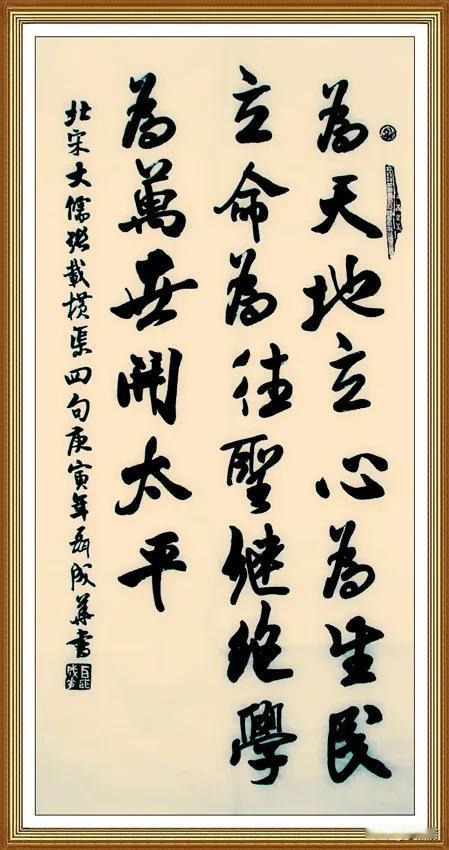 為天地立心為生民
立命為往聖継絶學
為萬世開太平
北宋大儒張載横渠四句庚寅年聶成華書